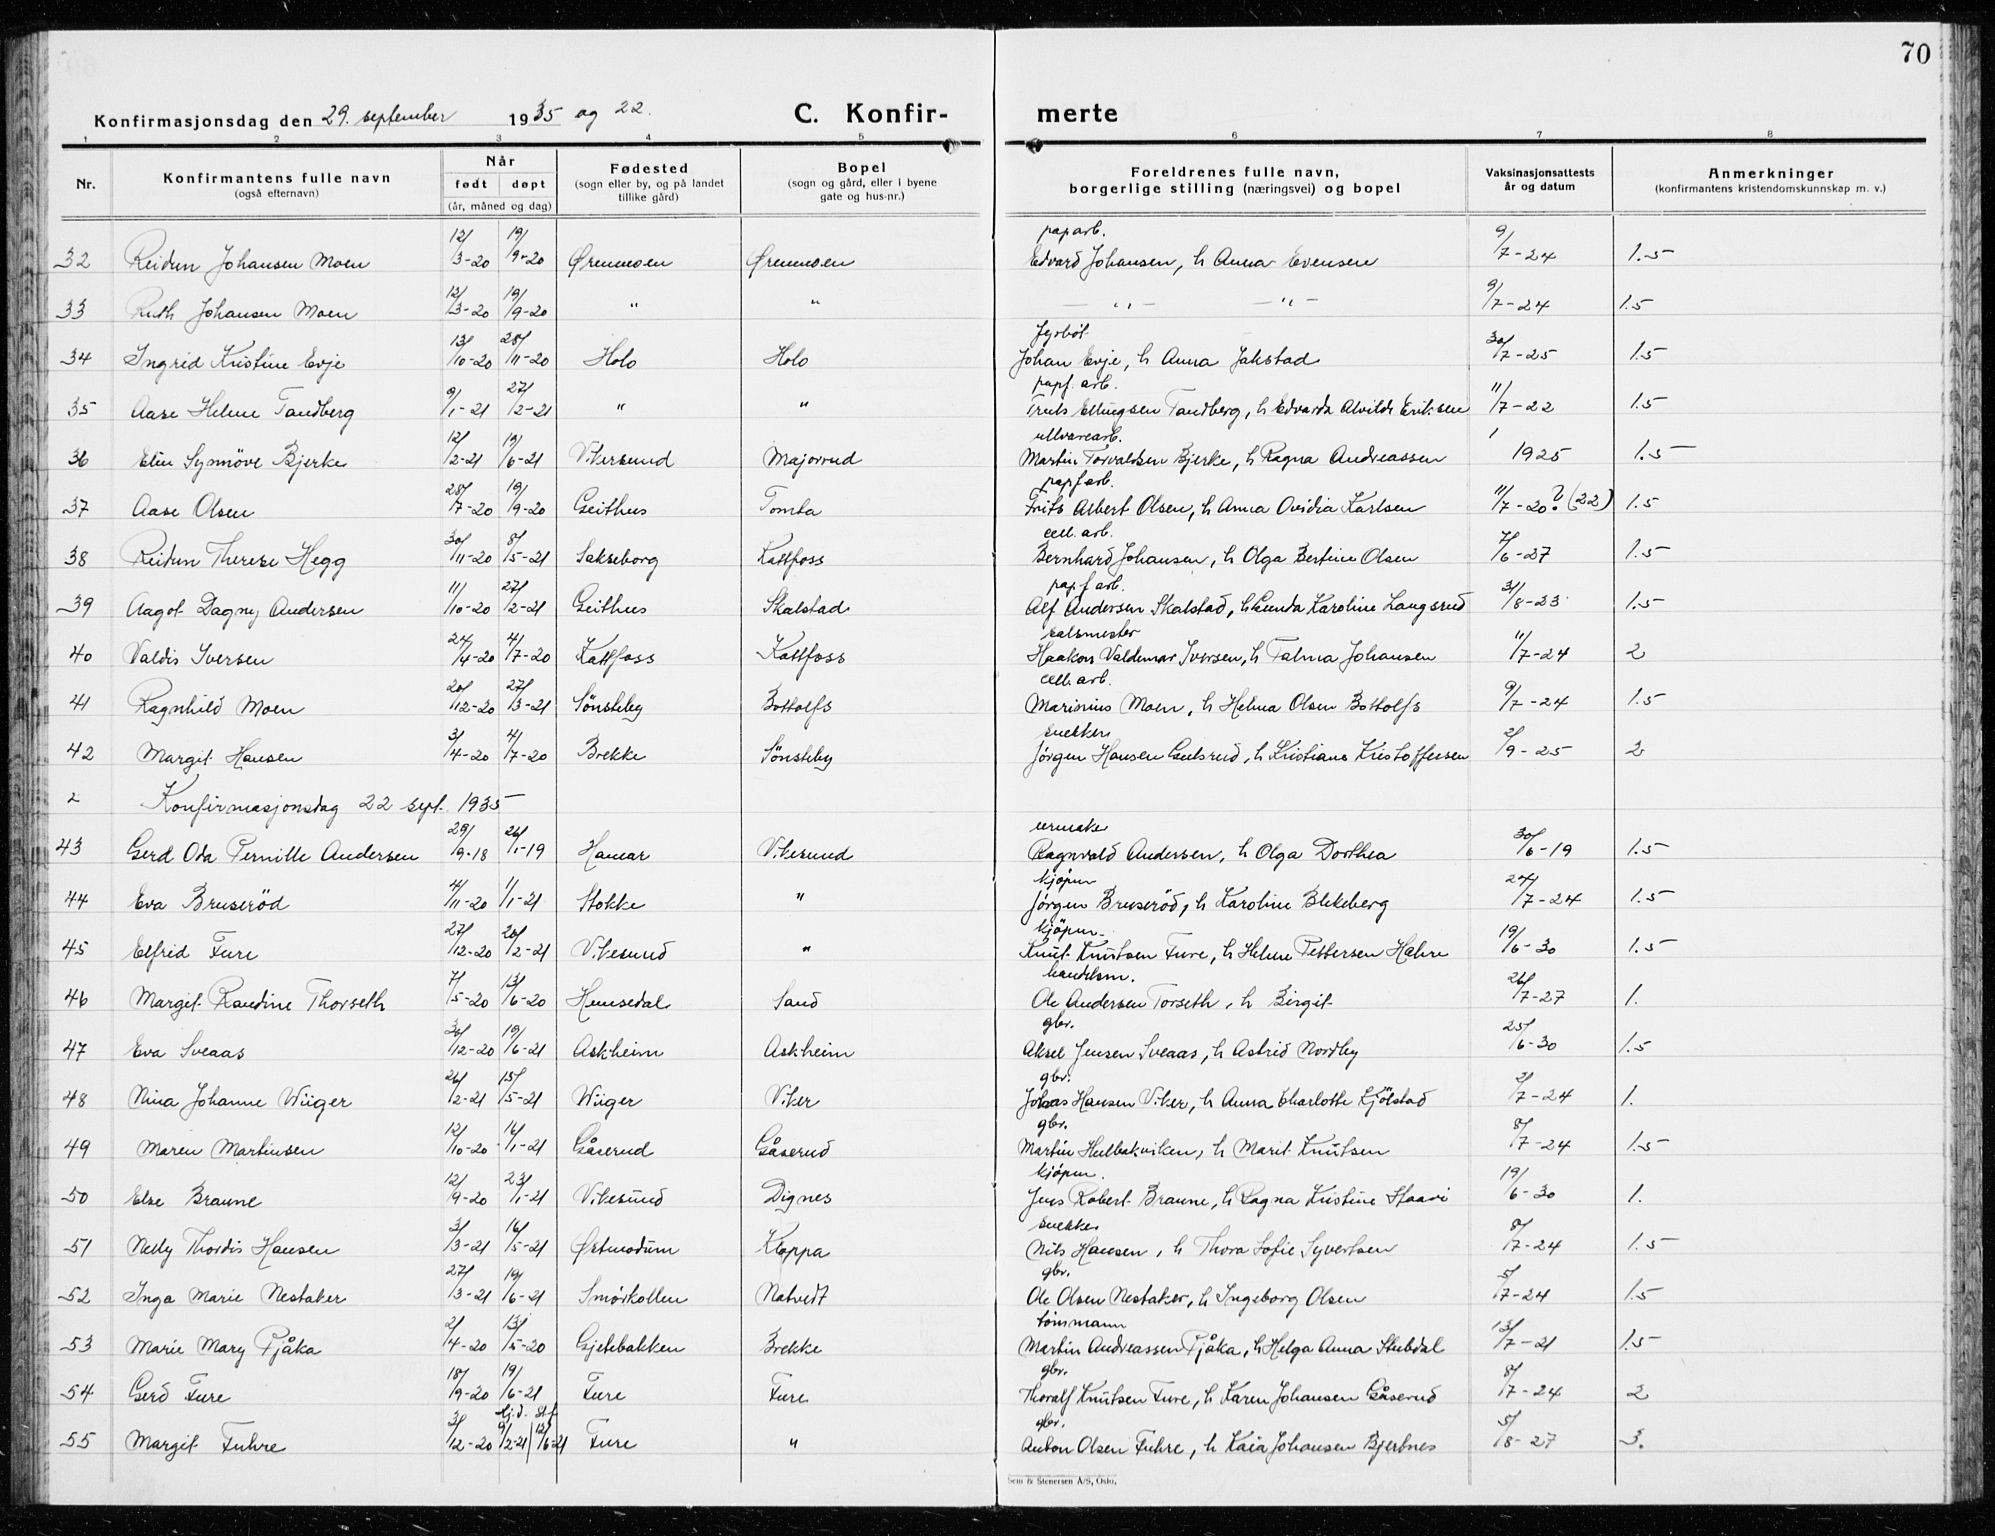 70
Konfirmasjonsdag den 29. september 1935 og 22. C. Konfir- merte
1 2 3 4 5 6 7 8
Nr. Konfirmantens fulle navn (også efternavn) Når født døpt (år, måned og dag) Fødested (sogn eller by, og på landet tillike gård) Bopel (sogn og gård, eller i byene gate og hus-nr.) Foreldrenes fulle navn, borgerlige stilling (næringsvei) og bopel Vaksinasjonsattests år og datum Anmerkninger (konfirmantens kristendomskunnskap m. v.)
pap arb.
32 Reidun Johansen Moen 12/3-20 19/9-20 Ørenmoen Ørenmoen Edvard Johansen, h Anna Evensen 9/7-24 1.5
33 Ruth Johansen Moen 12/3-20 19/9-20 " " — " — — " — 9/7-24 1.5
34 Ingrid Kristine Evje 13/10-20 28/11-20 Holo Holo Johan Evje, h Anna Jahstad 30/7-25 1.5
papf. arb.
35 Aase Helene Tandberg 9/1-21 27/2-21 " " Truls Ellingsen Tandberg, h Edvarda Alvilde Eriksen 11/7-22 1.5
ullvarearb.
36 Elin Synnöve Bjerke 12/2-21 19/6-21 Vikersund Majorrud Martin Torvaldsen Bjerke, h Ragna Andreassen 1925 1.5
papf arb.
37 Aase Olsen 28/7-20 19/9-20 Geithus Tomta Frits Albert Olsen, h Anna Ovidia Karlsen 11/7-20? (22) 1.5
cell. arb.
38 Reidun Therese Hegg 30/11-20 8/5-21 Sakseborg Kattfoss Bernhard Johansen, h Olga Bertine Olsen 7/6-27 1.5
papf arb.
39 Aagot Dagny Andersen 11/10-20 27/2-21 Geithus Skalstad Alf Andersen Skalstad, h Gunda Karoline Langsrud 31/8-23 1.5
salsmester
40 Valdis Iversen 24/4-20 4/7-20 Kattfoss Kattfoss Haakon Valdemar Iversen, h Talma Johansen 11/7-24 2
cell. arb.
41 Ragnhild Moen 20/12-20 27/3-21 Sønsteby Bottolfs Marinius Moen, h Helma Olsen Bottolfs 9/7-24 1.5
snekker
42 Margit Hansen 3/4-20 4/7-20 Brekke Sønsteby Jørgen Hansen Gulsrud, h Kristiane Kristoffersen 2/9-25 2
2 Konfirmasjonsdag 22 sept. 1935
urmaker
43 Gerd Oda Pernille Andersen 29/9-18 26/1-19 Hamar Vikesund Ragnvald Andersen, h Olga Dorthea 30/6-19 1.5
kjøpm
44 Eva Bruserød 4/11-20 1/1-21 Stokke " Jørgen Bruserød, h Karoline Blekeberg 24/7-24 1.5
kjöpm.
45 Elfrid Fure 27/12-20 20/2-21 Vikesund " Knut Knutsen Fure, h Helene Pettersen Hahre 19/6-30 1.5
handelsm.
46 Margit Randine Thorseth 7/5-20 13/6-20 Hemsedal Sand Ole Andersen Torseth, h Birgit 26/7-27 1.
gbr.
47 Eva Sveaas 30/12-20 19/6-21 Askheim Askheim Aksel Jensen Sveaas, h Astrid Nordby 25/6-30 1.5
gbr.
48 Nina Johanne Wiiger 26/2-21 15/5-21 Wiiger Viker Johas Hansen Viker, h Anna Charlotte Kjölstad 2/7-24 1.
gbr.
49 Maren Martinsen 12/10-20 16/1-21 Gåserud Gåserud Martin Hulbakviken, h Marit Knutsen 8/7-24 1.5
kjøpm.
50 Else Braune 12/9-20 23/1-21 Vikesund Dignes Jens Robert Braune, h Ragna Kristine Haavi 19/6-30 1.
snekker
51 Nelly Thordis Hansen 3/3-21 16/5-21 Østmodum Kloppa Nils Hansen, h Thora Sofie Syvertsen 8/7-24 1.5
gbr.
52 Inga Marie Nestaker 27/3-21 19/6-21 Smörkollen Natvedt Ole Olsen Nestaker, h Ingeborg Olsen 5/7-24 1.5
tömmann
53 Marie Mary Pjåka 2/4-20 13/5-20 Gjetebakken Brekke Martin Andreassen Pjåka, h Helga Anna Stubdal 13/7-21 1.5
gbr.
54 Gerd Fure 18/9-20 19/6-21 Fure Fure Thoralf Knutsen Fure, h Karen Johansen Gåserud 8/7-24 2
gbr.
55 Margit Fuhre 3/12-20 9/2-21 12/6-21 Fure " Anton Olsen Fuhre, h Kaia Johansen Bjertnes 5/8-27 3.
Sem & Stenersen A/S, Oslo.